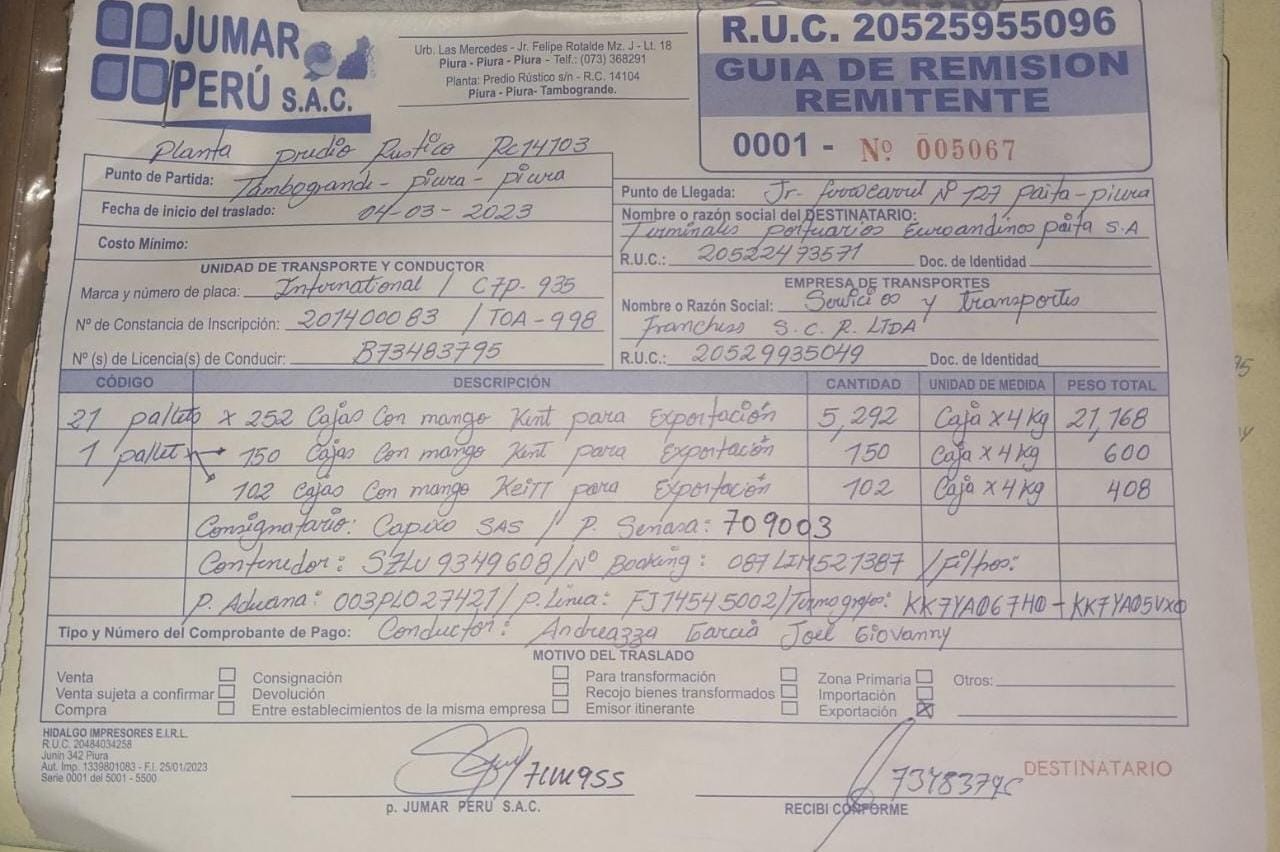 JUMAR
PERÚ S.A.C.
Urb. Las Mercedes - Jr. Felipe Rotalde Mz. J - Lt. 18
Piura - Piura - Piura - Telf.: (073) 368291
Planta: Predio Rústico s/n - R.C. 14104
Piura - Piura- Tambogrande.
R.U.C. 20525955096
GUIA DE REMISION
REMITENTE
0001 - Nº 005067
Planta predio Rustico Rc14103
Punto de Partida: Tambogrande - piura - piura
Fecha de inicio del traslado: 04-03-2023
Costo Mínimo:
Punto de Llegada: Jr. ferrocarril Nº 127 paita-piura
Nombre o razón social del DESTINATARIO:
Terminales portuarios Euroandinos paita S.A
R.U.C.: 20522473571 Doc. de Identidad
UNIDAD DE TRANSPORTE Y CONDUCTOR
Marca y número de placa: International / C7P-935
Nº de Constancia de Inscripción: 201400083 / TOA-998
Nº (s) de Licencia(s) de Conducir: B73483795
EMPRESA DE TRANSPORTES
Nombre o Razón Social: Servicios y transportes
Franchess S.C.R. LTDA
R.U.C.: 20529935049 Doc. de Identidad
CÓDIGO DESCRIPCIÓN CANTIDAD UNIDAD DE MEDIDA PESO TOTAL
21 pallets x 252 Cajas Con mango Kent para Exportación 5,292 Caja x4kg 21,168
1 pallet 150 Cajas Con mango Kent para Exportación 150 Caja x4kg 600
102 Cajas Con mango Keitt para Exportación 102 Caja x4kg 408
Consignatario: Capixo SAS / P. Senasa: 709003
Contenedor: SZLU 9349608 / Nº Booking: 087LIM521387 / Filtros:
P. Aduana: 003PL027421 / p.Linea: FJ14545002 / Termografos: KK7YA067H0 - KK7YA05VX0
Tipo y Número del Comprobante de Pago: Conductor: Andreazza Garcia Joel Giovanny
MOTIVO DEL TRASLADO
Venta
Venta sujeta a confirmar
Compra
Consignación
Devolución
Entre establecimientos de la misma empresa
Para transformación
Recojo bienes transformados
Emisor itinerante
Zona Primaria
Importación
Exportación X
Otros:
HIDALGO IMPRESORES E.I.R.L.
R.U.C. 20484034258
Junín 342 Piura
Aut. Imp. 1339801083 - F.I. 25/01/2023
Serie 0001 del 5001 - 5500
p. JUMAR PERÚ S.A.C.
RECIBI CONFORME
DESTINATARIO